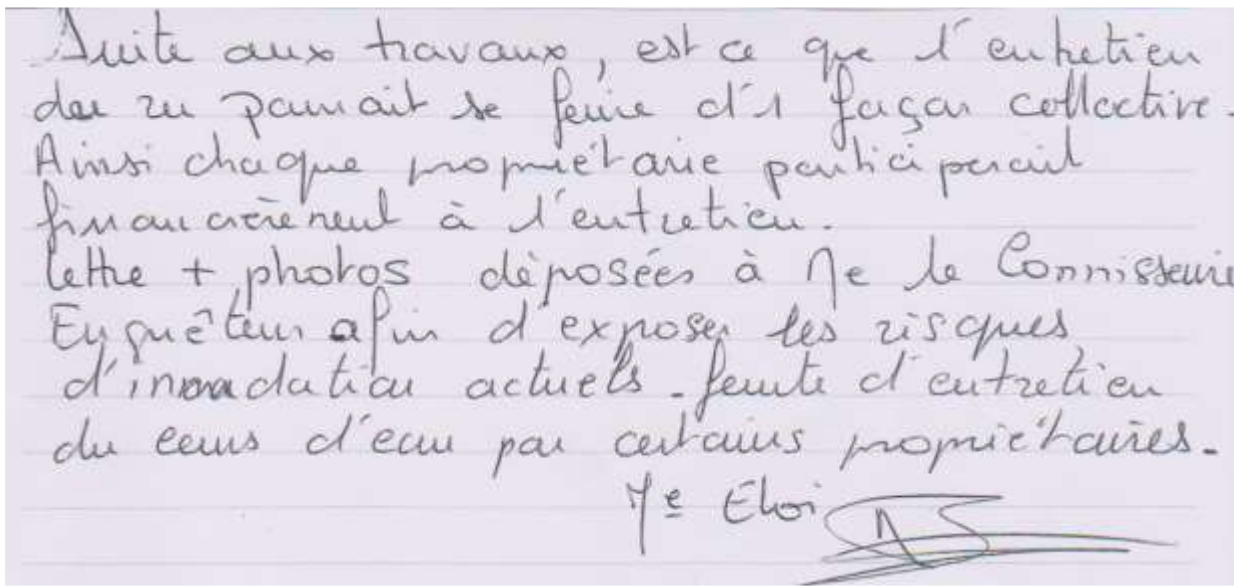 Suite aux travaux, est ce que l'entretien
du ru pourrait se faire d'1 façon collective.
Ainsi chaque propriétaire participerait
financièrement à l'entretien.
lettre + photos déposées à Me le Commissaire
Enquêteur afin d'exposer les risques
d'inondation actuels - faute d'entretien
du cours d'eau par certains propriétaires.
Me Eloi